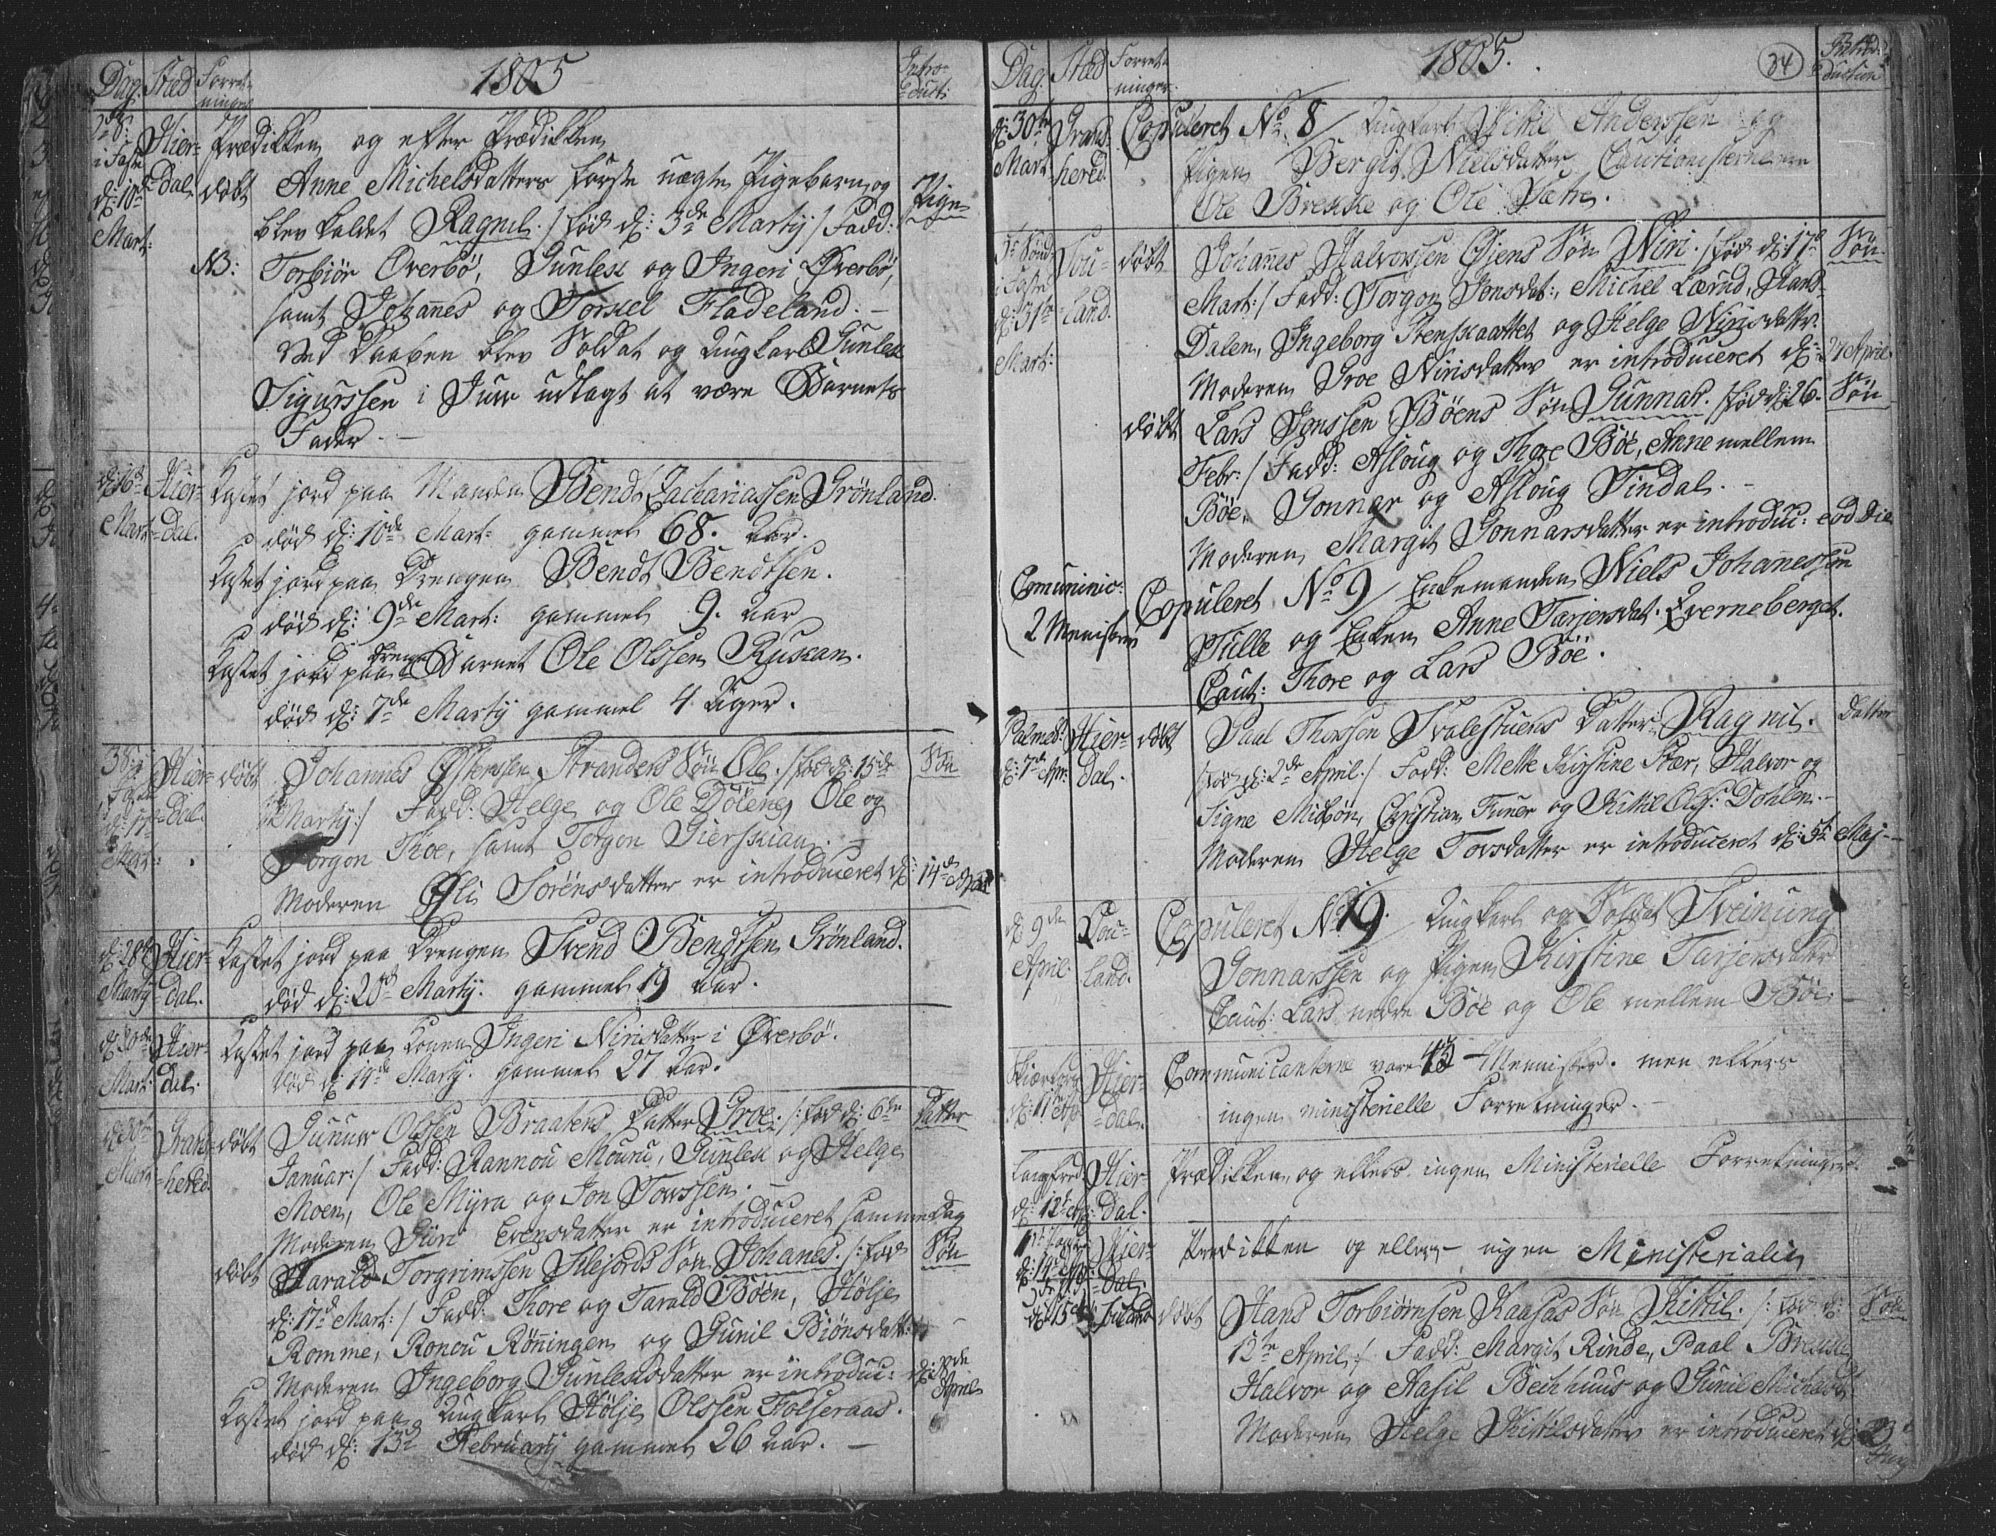 Dag Stæd Forret-
ninger
1805
Intro-
duct:
i Faste
d: 10de
Mart:
Hier-
dal
Prædikken og efter Prædikken
døbt Anne Michelsdatters første uægte Pigebarn og
Pige
blev kaldet Ragnil. / fød d: 3de Martij / Fadd:
NB: Torbiør Øverbø, Gunlek og Ingeri Øverbø,
samt Johannes og Torkel Fladeland. –
Ved Daaben blev Soldat og Ungkarl Gunlek
Sigurssen i Juuv udlagt at være Barnets
Fader. –
d: 16de
Mart:
Hier-
dal.
Kastet jord paa Manden Bendt Zachariassen Grönland.
død d: 10de Mart: gammel 68. Aar.
Kastet jord paa Drengen Bendt Bendtsen.
død d: 9de Mart: gammel 9. Aar
Kastet jord paa Drenge Barnet Ole Olssen Rjukan.
død d: 7de Martij gammel 4 Uger.
Mar:
Hier-
dal.
døbt Johannes Østenssen Strandens Søn Ole. / fød d: 15de
Søn
Martij / Fadd: Helge og Ole Dölen, Ole og
Torgon Thoe, samt Torgon Gierskian.
Moderen Øli Sörensdatter er introduceret d: 14de April
d: 28de
Martij
Hier-
dal.
Kastet jord paa Drengen Svend Bendtsen Grönland.
død d: 20de Martij. gammel 19 Aar.
d: 30de
Mart:
Hier-
dal:
Kastet jord paa Konen Ingeri Nirisdatter i Øverbø.
død d: 14de Martij. gammel 27 Aar.
d: 30te
Mart
Grans-
hered.
døbt Gunuv Olssen Braatens Datter Groe. /: fød d: 6te
Datter
Januar: / Fadd: Rannou Mouru, Gunlek og Helge
Moen, Ole Myra og Jon Tovssen. –
Moderen Güri Evensdatter er introduceret samme Dag
døbt Harald Torgrimssen Silejords Søn Johanes. /: fød
Søn
d: 17de Mart: / Fadd: Thore og Tarald Böen, Hölje
Romme, Ronou Rönningen og Gunil Biönsdatt:
Moderen Ingeborg Gunleksdatter er introduc: d:
April
Kastet jord paa Ungkarl Hölje Olssen Folseraas.
død d: 13de Februarij gammel 26 Aar. –
Dag. Stæd Forret-
ninger.
1805.
34
Introd:
duction
d: 30te
Mart:
Grans-
hered.
Copuleret No 8 / Ungkarl Kittil Anderssen og
Pigen Bergit Nielsdatter, Cautionisterne ere
Ole Brekke og Ole Sætre.
5te Sönd:
i Faste
d: 31te
Mart:
Sou-
land.
døbt Johannes Halvorssen Øiens Søn Niri. / fød d: 17de
Søn
Mart: / Fadd: Torgon Jonsdat:, Michel Lærud, Hans
Dalen, Ingeborg Stenskaattet og Helge Nirisdattr.
Moderen Groe Nirisdatter er introduceret d: 27 April
døbt Lars Jonssen Böens Søn Gunnar. / fød d: 26.
Søn
Febr: / Fadd: Asloug og Thore Böe, Anne mellem
Böe, Gonnar og Asloug Tindal. –
Moderen Margit Gonnarsdatter er introduc: eod Die
Comunic:
2 Mennisker
Copuleret No 9 / Enkemanden Niels Johannessen
Tulle og Enken Anne Tarjensdat. Qverneberget.
Caut: Thore og Lars Böe.
Palmes:
d: 7de Apr:
Hier-
dal.
døbt Paul Thorsen Svalestuens Datter Ragnil.
Datter
/ fød d: 2de April. / Fadd: Mette Kirstine Stær, Halvor og
Signe Midbön, Christian Funer og Kittil Ols: Dohlen. –
Moderen Helge Torsdatter er introduceret d: 5te Maj –
d: 9de
April.
Sou-
land.
Copuleret No 10. / Ungkarl og Soldat Sveinung
Gonnarssen og Pigen Kirstine Tarjensdatter
Caut: Lars nedre Böe og Ole mellem Böe. –
Skiærtors
d: 11te Apr:
Hier-
dal.
Communicanterne vare 43 Mennisker. men ellers
ingen ministerielle Forretninger. –
Langfred:
d: 12te Apr:
Hier-
dal.
Prædikken og ellers ingen Ministerielle Forretninger.
d: 14de Apr:
Hier-
dal
Prediken og ellers ingen Ministerialia
d: 15de
Souland
døbt Hans Torbiørnsen Kaasas Søn Kittil. /: fød d:
Søn
12te April / Fadd: Margit Rinde, Paal Brekke,
Halvor og Aasil Bechhuus og Gunil Michelsd:
Moderen Helge Kittilsdatter er introduceret d: